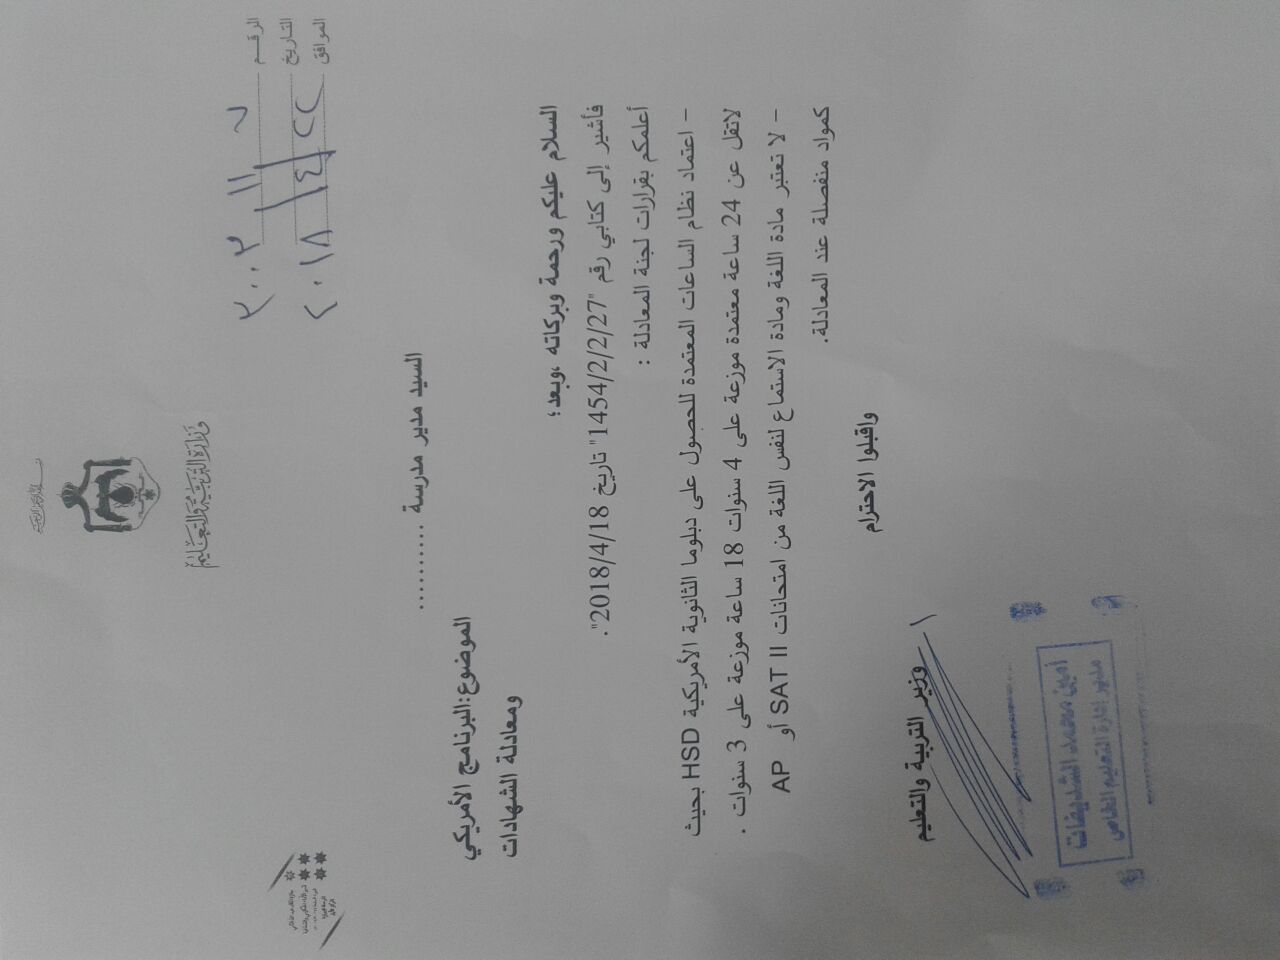 وزارة التربية والتعليم
الرقم
التاريخ
الموافق ٢٠١٨
السيد مدير مدرسة ..........
الموضوع:البرنامج الأمريكي
ومعادلة الشهادات
السلام عليكم ورحمة وبركاته ،وبعد؛
فأشير إلى كتابي رقم "1454/2/2/27" تاريخ 2018/4/18".
أعلمكم بقرارات لجنة المعادلة :
– اعتماد نظام الساعات المعتمدة للحصول على دبلوما الثانوية الأمريكية HSD بحيث
لاتقل عن 24 ساعة معتمدة موزعة على 4 سنوات 18 ساعة موزعة على 3 سنوات .
– لا تعتبر مادة اللغة ومادة الاستماع لنفس اللغة من امتحانات SAT II أو AP
كمواد منفصلة عند المعادلة.
واقبلوا الاحترام
وزير التربية والتعليم
أمين محمد الشديفات
مدير إدارة التعليم الخاص